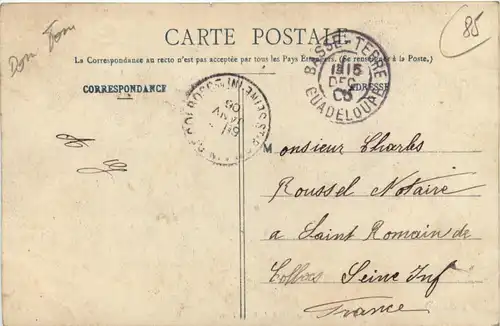 Dom Tom
85
CARTE POSTALE
La Correspondance au recto n'est pas acceptée par tous les Pays Etrangers. (Se renseigner à la Poste.)
CORRESPONDANCE
ADRESSE
BASSE-TERRE
15
DEC
05
GUADELOUPE
Monsieur Charles
Roussel Notaire
a Saint Romain de
Colbosc Seine Inf
France